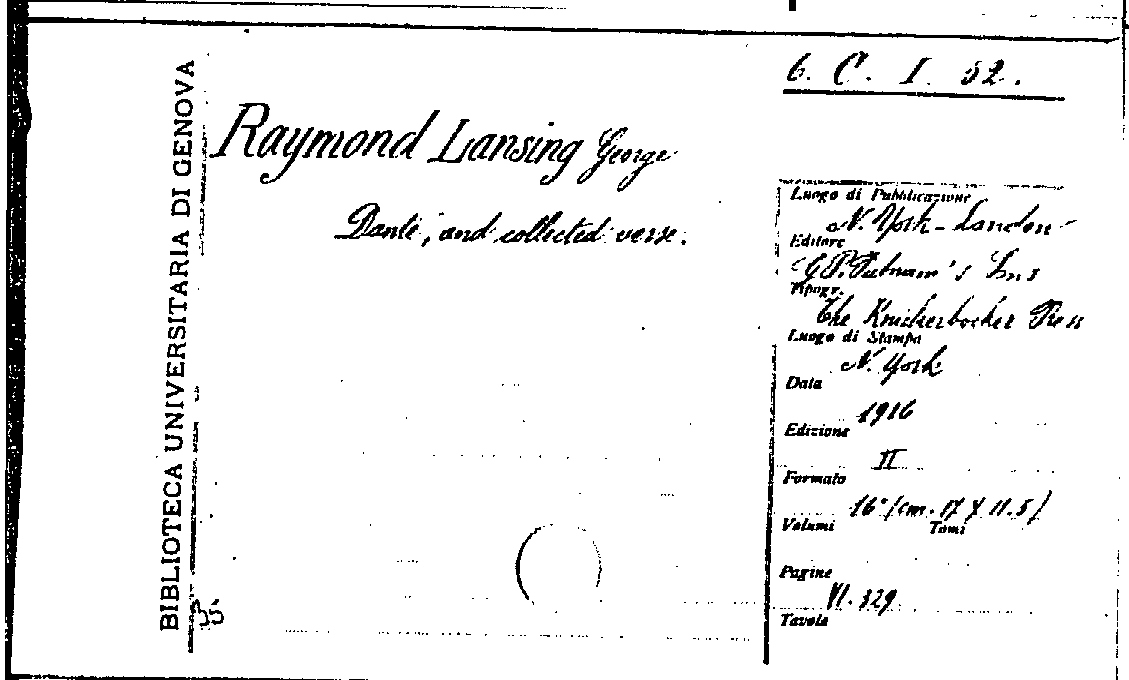 6. C. I. 52.
BIBLIOTECA UNIVERSITARIA DI GENOVA
Raymond Lansing George
Dante, and collected verse.
Luogo di Pubblicazione
N. York - London
Editore
G.P. Putnam's Sons
Tipogr.
The Knickerbocker Press
Luogo di Stampa
N. York
Data
1916
Edizione
II
Formato
16° (cm. 17 X 11.5)
Volumi Tomi
Pagine
VI. 329
Tavole